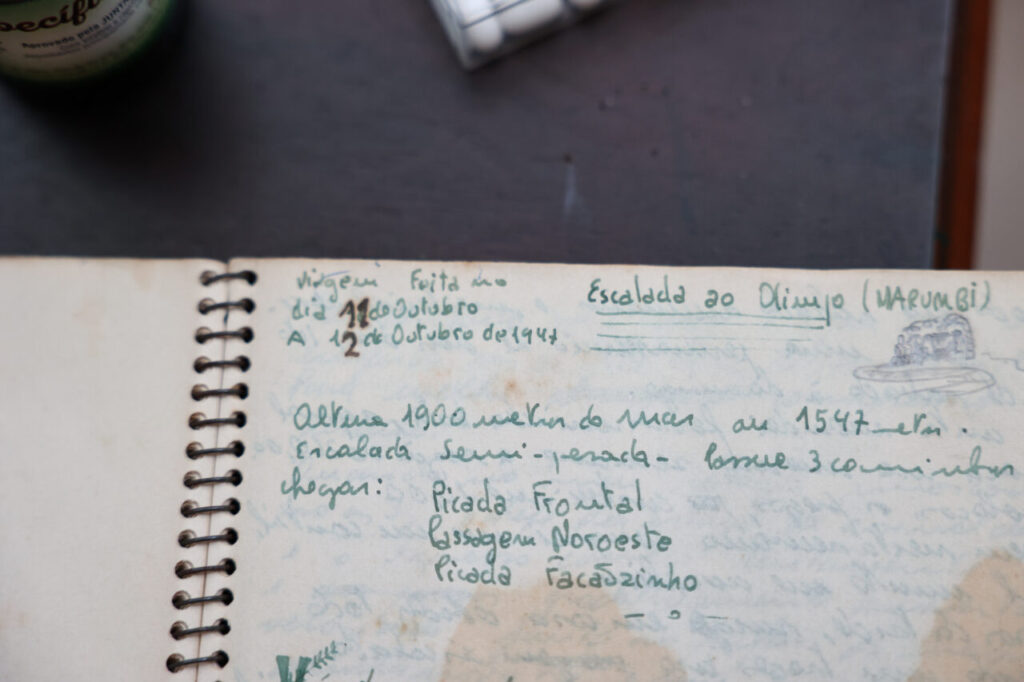 ecífi
Aprovado pela JUNTA
Viagem Feita no
dia 11 de Outubro
A 12 de Outubro de 1947
Escalada ao Olimpo (MARUMBI)
Altura 1900 metros do mar ou 1547 metrs.
Escalada Semi-pesada- Possue 3 caminhos
chegar:
Picada Frontal
Passagem Noroeste
Picada Facãozinho